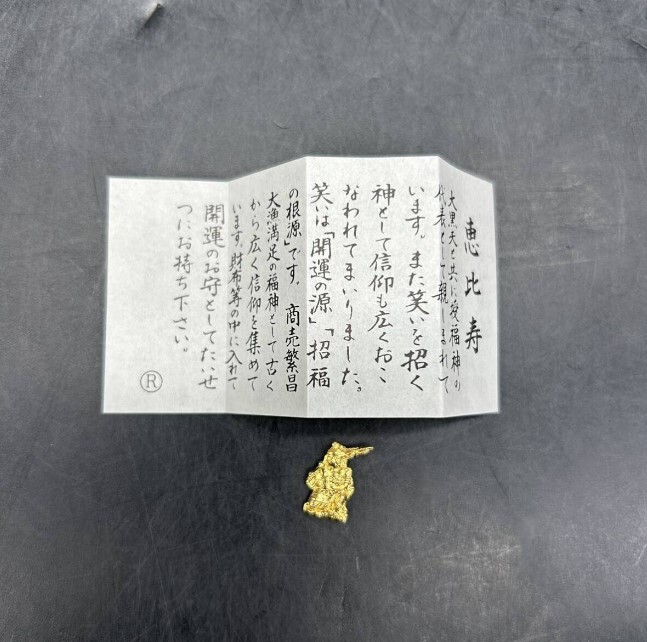 恵比寿
大黒天と共に受福神の
代表として親しまれて
います。また笑いを招く
神として信仰も広くおこ
なわれてまいりました。
笑いは「開運の源」「招福
の根源」です。 商売繁昌
大漁満足の福神として古く
から広く信仰を集めて
います。財布等の中に入れて
開運のお守としてたいせ
つにお持ち下さい。
Ⓡ